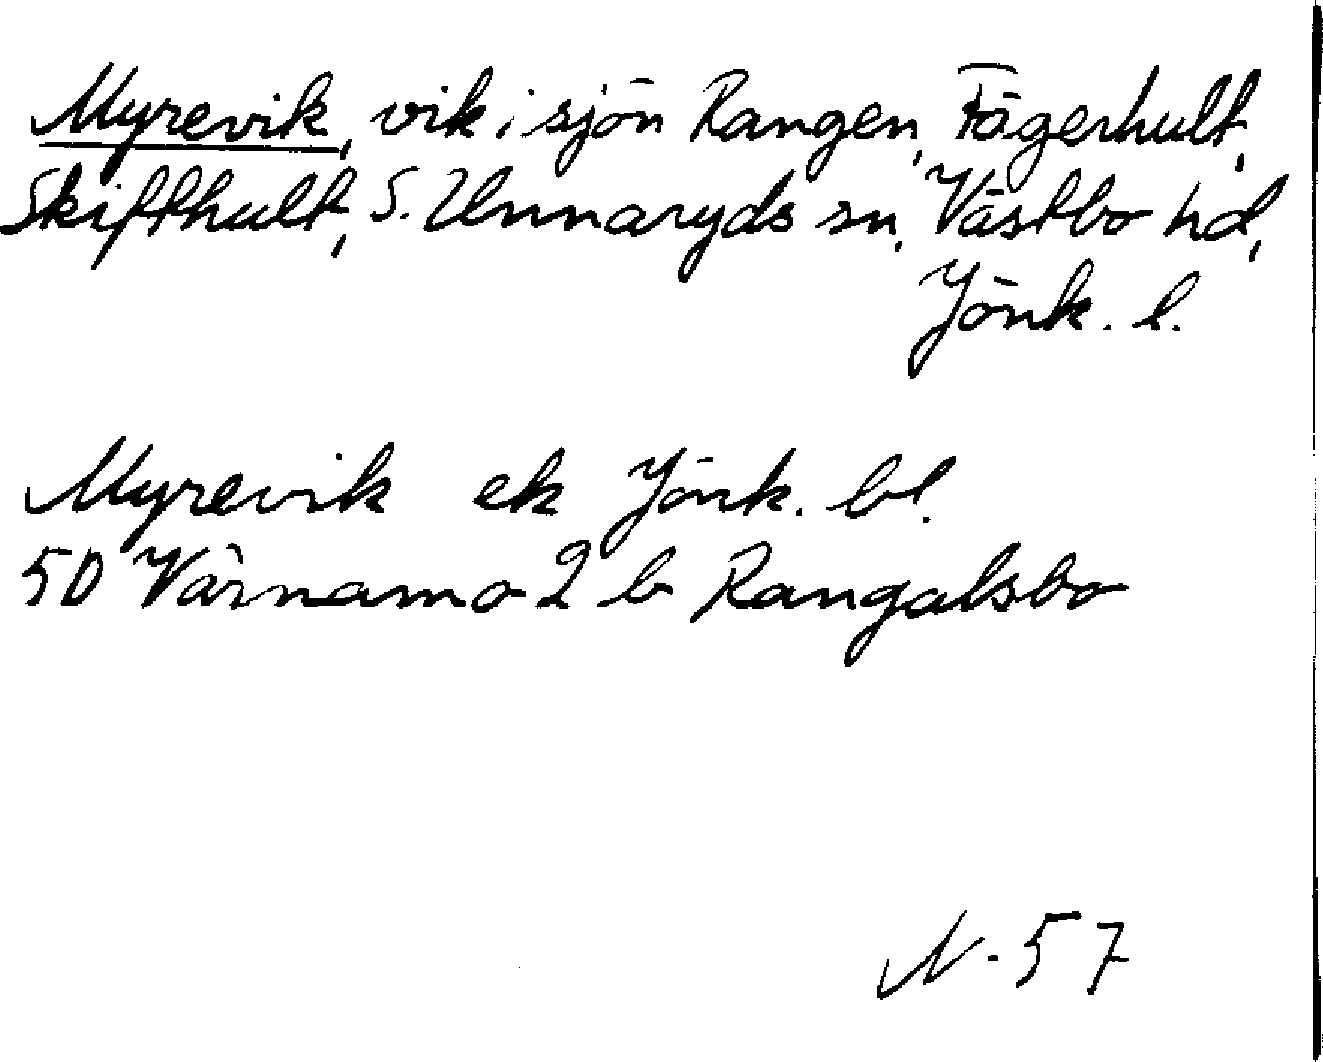 Myrevik, vik i sjön Rangen, Fägerhult,
Skifthult, S. Unnaryds sn, Västbo hd,
Jönk. l.
Myrevik ek Jönk. bl.
5D Värnamo 2 b Rangalsbo
N. 57